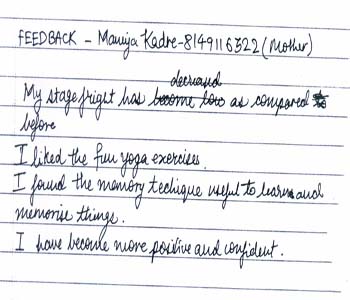 FEEDBACK - Manija Kadre-8149116322 (Mother)
decreased
My stage fright has become low as compared to
before
I liked the fun yoga exercises.
I found the memory techique useful to learn and
memorise things.
I have become more positive and confident.